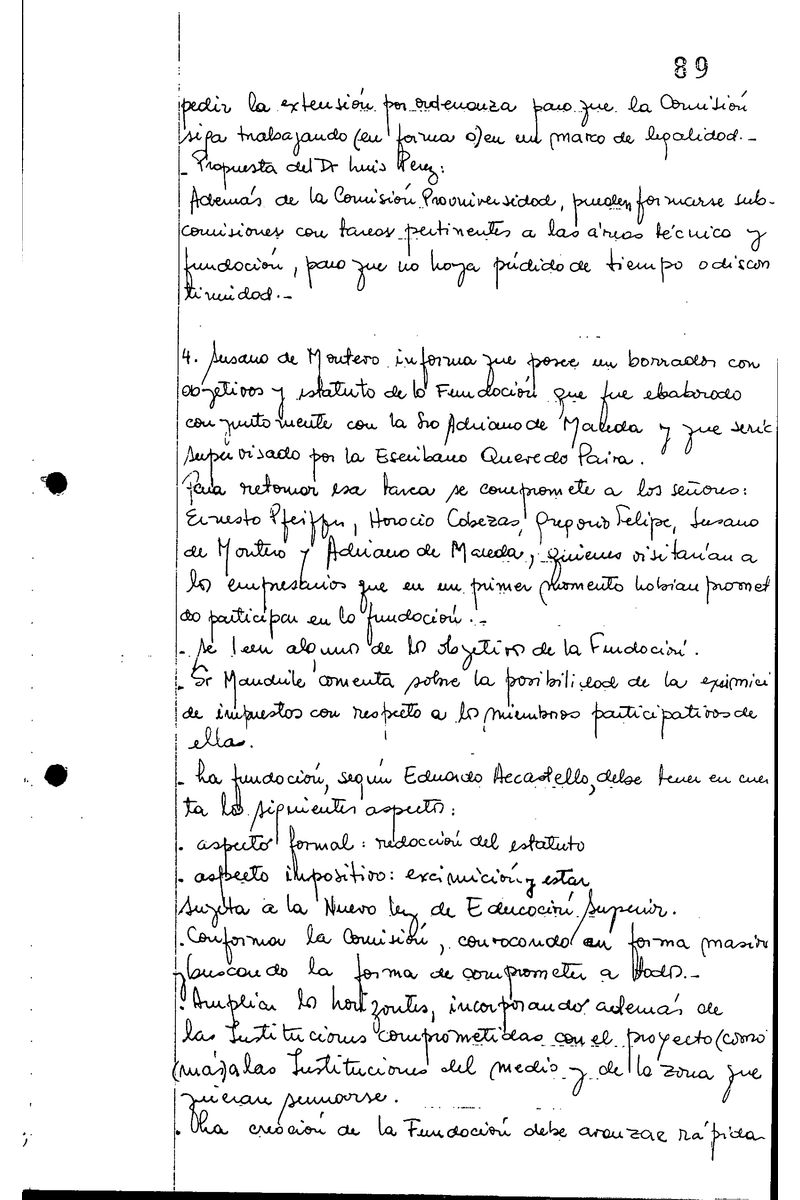 89
pedir la extensión por ordenanza para que la Comisión
siga trabajando (en forma o) en un marco de legalidad.-
- Propuesta del Dr Luis Perez:
Además de la Comisión Prouniversidad, pueden formarse sub-
comisiones con tareas pertinentes a las áreas técnica y
fundación, para que no haya pérdida de tiempo o discon
tinuidad.-
4. Susana de Montero informa que posee un borrador con
objetivos y estatuto de la Fundación que fue elaborado
conjuntamente con la Sra Adriana de Maueda y que sería
supervisado por la Escribana Quevedo Paiva.
Para retomar esa tarea se compromete a los señores:
Ernesto Pfeiffer, Horacio Cabezas, Gregorio Felipe, Susana
de Montero y Adriana de Maueda, quienes visitarían a
los empresarios que en un primer momento habrían promet
do participar en la fundación.-
- Se leen algunos de los objetivos de la Fundación.
- Sr Mandrile comenta sobre la posibilidad de la eximici
de impuestos con respecto a los miembros participativos de
ella.
- La fundación, según Eduardo Accastello, debe tener en cuen
ta los siguientes aspectos:
. aspecto formal: redacción del estatuto
. aspecto impositivo: eximición y estar
sujeta a la Nueva ley de Educación Superior.
. Conformar la Comisión, convocando en forma masiva
y buscando la forma de comprometer a todos.-
. Ampliar los horizontes, incorporando además de
las Instituciones comprometidas con el proyecto (como
(más) a las Instituciones del medio y de la zona que
quieran sumarse.
. La creación de la Fundación debe avanzar rápida